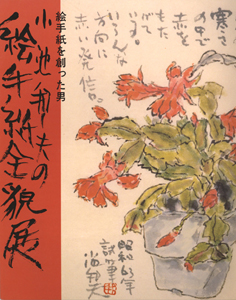 絵手紙を創った男
小池邦夫の
絵手紙全貌展
の中で
赤を
もた
げて
いろんな
方向に
赤い発信。
昭和63年
小池邦夫